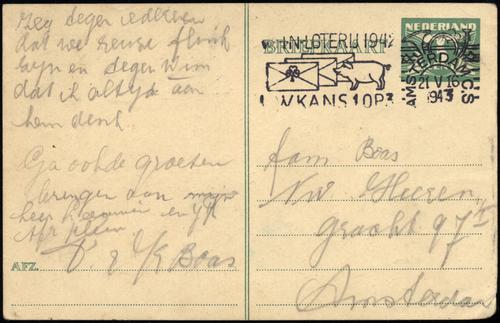 zeg zeger iedereen
dat we reuze flink
zijn en zeger Wim
dat ik altijd aan
hem denk.
Ga ook de groeten
brengen aan mijn
heer en
V & Boas
AFZ.
NEDERLAND
BRIEFKAART
IN LOTERIJ 1942
UW KANS 1 OP 3
AMSTERDAM C.S.
21 V 16
1943
Fam Boas
Nw Heeren
gracht 97 II
Amsterdam